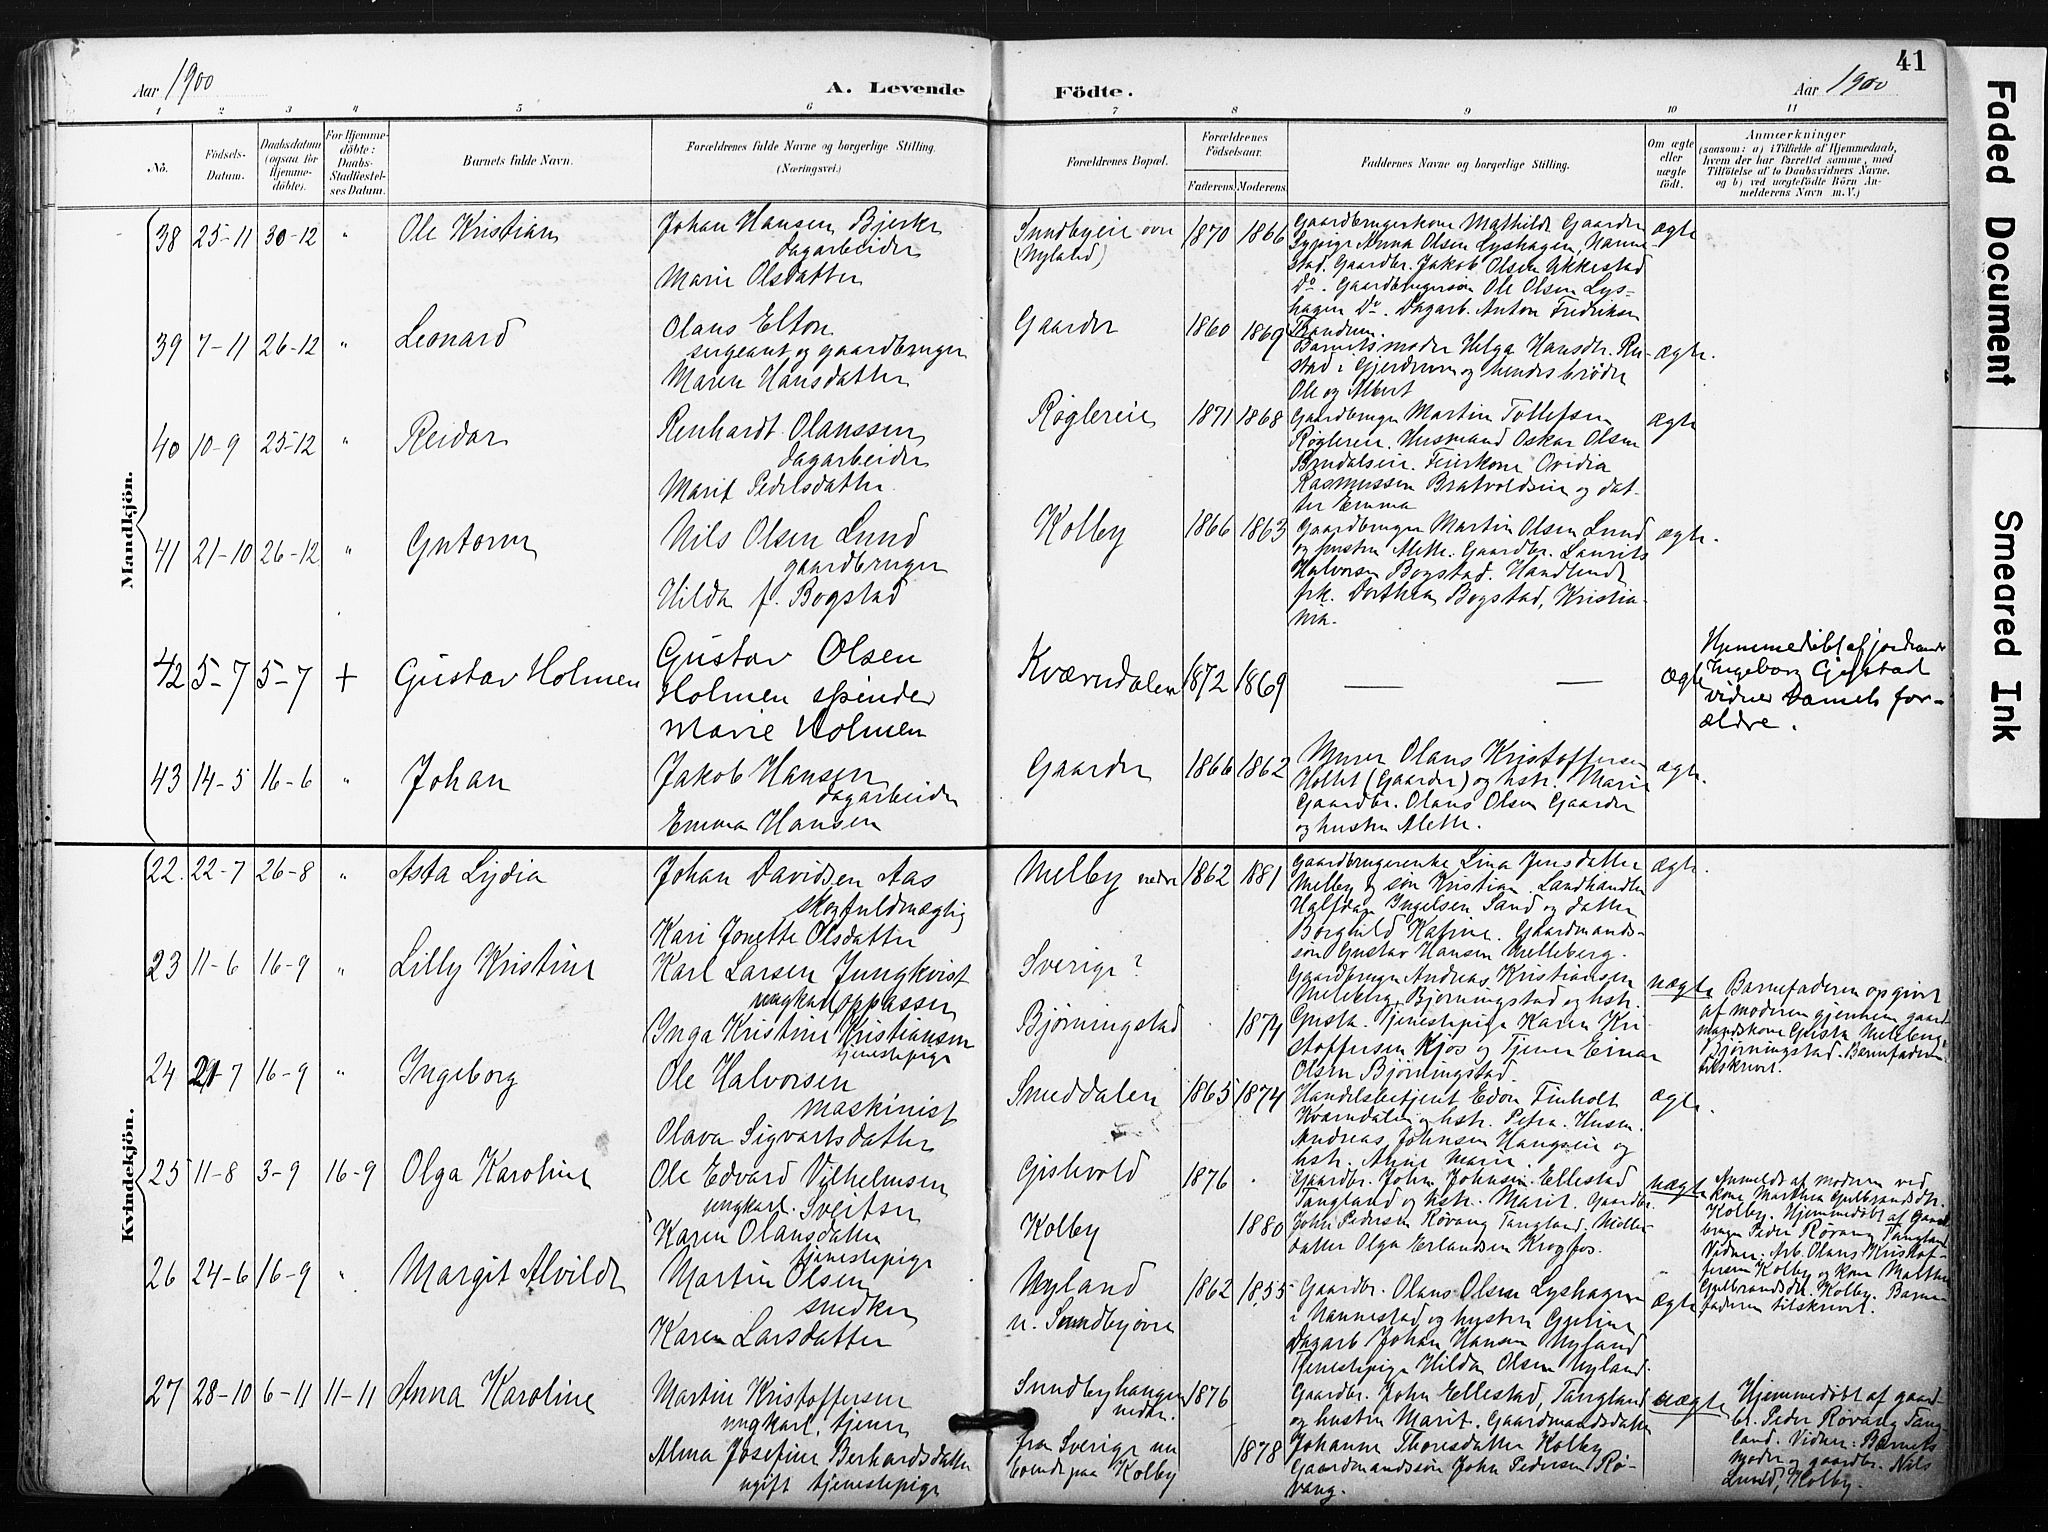 41
Aar 1900
A. Levende
Födte.
Aar 1900
1 2 3 4 5 6 7 8 9 10 11
No.
Födsels-
Datum.
Daabsdatum
(ogsaa for
Hjemme-
döbte).
For Hjemme-
döbte:
Daabs-
Stadfæstel-
ses Datum.
Barnets fulde Navn.
Forældrenes fulde Navne og borgerlige Stilling.
(Næringsvei.)
Forældrenes Bopæl.
Forældrenes
Födselsaar.
Faderens. Moderens.
Faddernes Navne og borgerlige Stilling.
Om ægte
eller
uægte
födt.
Anmærkninger
(saasom: a) i Tilfælde af Hjemmedaab,
hvem der har forrettet samme, med
Tilföielse af to Daabsvidners Navne,
og b) ved uægtefödte Börn An-
melderens Navn m. V.)
Mandkjön.
38 25-11 30-12 " Ole Kristian
Johan Hansen Bjerke
dagarbeider
Marie Olsdatter
Sundbyeie øvre
(Nyland)
1870 1866
Gaardbrugerkone Mathilde Gaarder
Sypige Anna Olsen Lyshagen, Nanne-
stad. Gaardbr. Jakob Olsen Ukkestad
Do. Gaardbrugersøn Ole Olsen Lys-
hagen Do. Dagarb. Anton Fredriksen
Trandum.
ægte
39 7-11 26-12 " Leonard
Olaus Elton
sergeant og gaardbruger
Maren Hansdatter
Gaarder
1860 1869
Barnets moder Helga Hansdtr. Ru-
stad i Gjerdrum og hendes brødre
Ole og Albert
ægte.
40 10-9 25-12 " Reidar
Renhardt Olaussen
dagarbeider
Marit Pedersdatter
Røglereie
1871 1868
Gaardbruger Martin Tollefsen
Røglereie. Husmand Oskar Olsen
Brudalseie. Feierkone Ovidia
Rasmussen Bratvoldseie og dat-
ter Emma
ægte
41 21-10 26-12 " Gutorm
Nils Olsen Lund
gaardbruger
Hilda f. Bogstad
Kolby
1866 1863
Gaardbruger Martin Olsen Lund
og hustru Alette. Gaardbr. Laurits
Halvorsen Bogstad. Handlende
frk. Dorthea Bogstad, Kristia-
nia.
ægte.
42 5-7 5-7 + Gustav Holmen
Gustav Olsen
Holmen spinder
Marie Holmen
Kværndalen
1872 1869
— —
ægte
Hjemmedøbt af jordmoder
Ingeborg Gjestad
vidner Barnets for-
ældre.
43 14-5 16-6 " Johan
Jakob Hansen
dagarbeider
Emma Hansen
Gaarder
1866 1862
Murer Olaus Kristoffersen
Holtet (Gaarder) og hstr. Marie
Gaardbr. Olaus Olsen Gaarder
og hustru Alette.
ægte.
Kvindekjön.
22. 22-7 26-8 " Asta Lydia
Johan Davidsen Aas
skogfuldmægtig
Kari Jonette Olsdatter
Melby nedre
1862 1881
Gaardbrugerenke Lina Jensdatter
Melby og søn Kristian. Landhandler
Halfdan Ingelsen Sand og datter
Borghild Katine. Gaardmands-
søn Gustav Hansen Melleberg.
ægte.
23 11-6 16-9 " Lilly Kristine
Karl Larsen Jungkvist
ungkarl oppasser
Inga Kristine Kristiansen
tjenestepige
Sverige?
Bjørningstad
1874
Gaardbruger Andreas Kristiansen
Meleberg, Bjørningstad og hstr.
Gusta. Tjenestepige Karen Kri-
stoffersen Kjos og Tjener Einar
Olsen Bjørningstad.
uægte
Barnefaderen opgivet
af moderen gjennem gaard-
mandskone Gusta Meleberg,
Bjørningstad. Barnefaderen
tilskrevet.
24 21-7 16-9 " Ingeborg
Ole Halvorsen
maskinist
Olava Sigvartsdatter
Smeddalen
1865 1874
Handelsbetjent Edon Finholt
Kværndalen og hstr. Petra. Husm.
Andreas Johnsen Haugseie og
hstr. Anne Marie.
ægte.
25 11-8 3-9 16-9 Olga Karoline
Ole Edvard Vilhelmsen
ungkarl. Sveitser
Karen Olausdatter
tjenestepige
Gislevold
Kolby
1876
1880
Gaardbr. John Johnsen Ellestad
Tangland og hstr. Marit. Gaardbr.
John Pedersen Røvang Tangland. Møller-
datter Olga Erlandsen Krogfos.
uægte
Anmeldt af moderen ved
kone Marthea Gulbrandsdtr.
Kolby. Hjemmedøbt af Gaard-
bruger Peder Røvang Tangland
Vidner: Arb. Olaus Kristof-
fersen Kolby og kone Marthea
Gulbrandsdtr. Kolby. Barne-
faderen tilskrevet.
26 24-6 16-9 " Margit Alvilde
Martin Olsen
snedker
Karen Larsdatter
Nyland
u. Sundby øvre
1862 1855
Gaardbr. Olaus Olsen Lyshagen
i Nannestad og hustru Gueline
Dagarb. Johan Hansen Nyland
Tjenestepige Hilda Olsen Nyland.
ægte
27 28-10 6-11 11-11 Anna Karoline
Martin Kristoffersen
ungkarl, tjener
Alma Josefine Berhardsdatter
ugift tjenestepige
Sundbyhaugen
nedre.
fra Sverige nu
boende paa Kolby
1876
1878
Gaardbr. John Ellestad, Tangland
og hustru Marit. Gaardmandsdatter
Johanne Thoresdatter Kolby
Gaardmandssøn John Pedersen Rø-
vang.
uægte
Hjemmedøbt af gaard-
br. Peder Røvang Tang-
land. Vidner: Barnets
moder og gaardbr. Nils
Lund, Kolby.
Faded Document
Smeared Ink